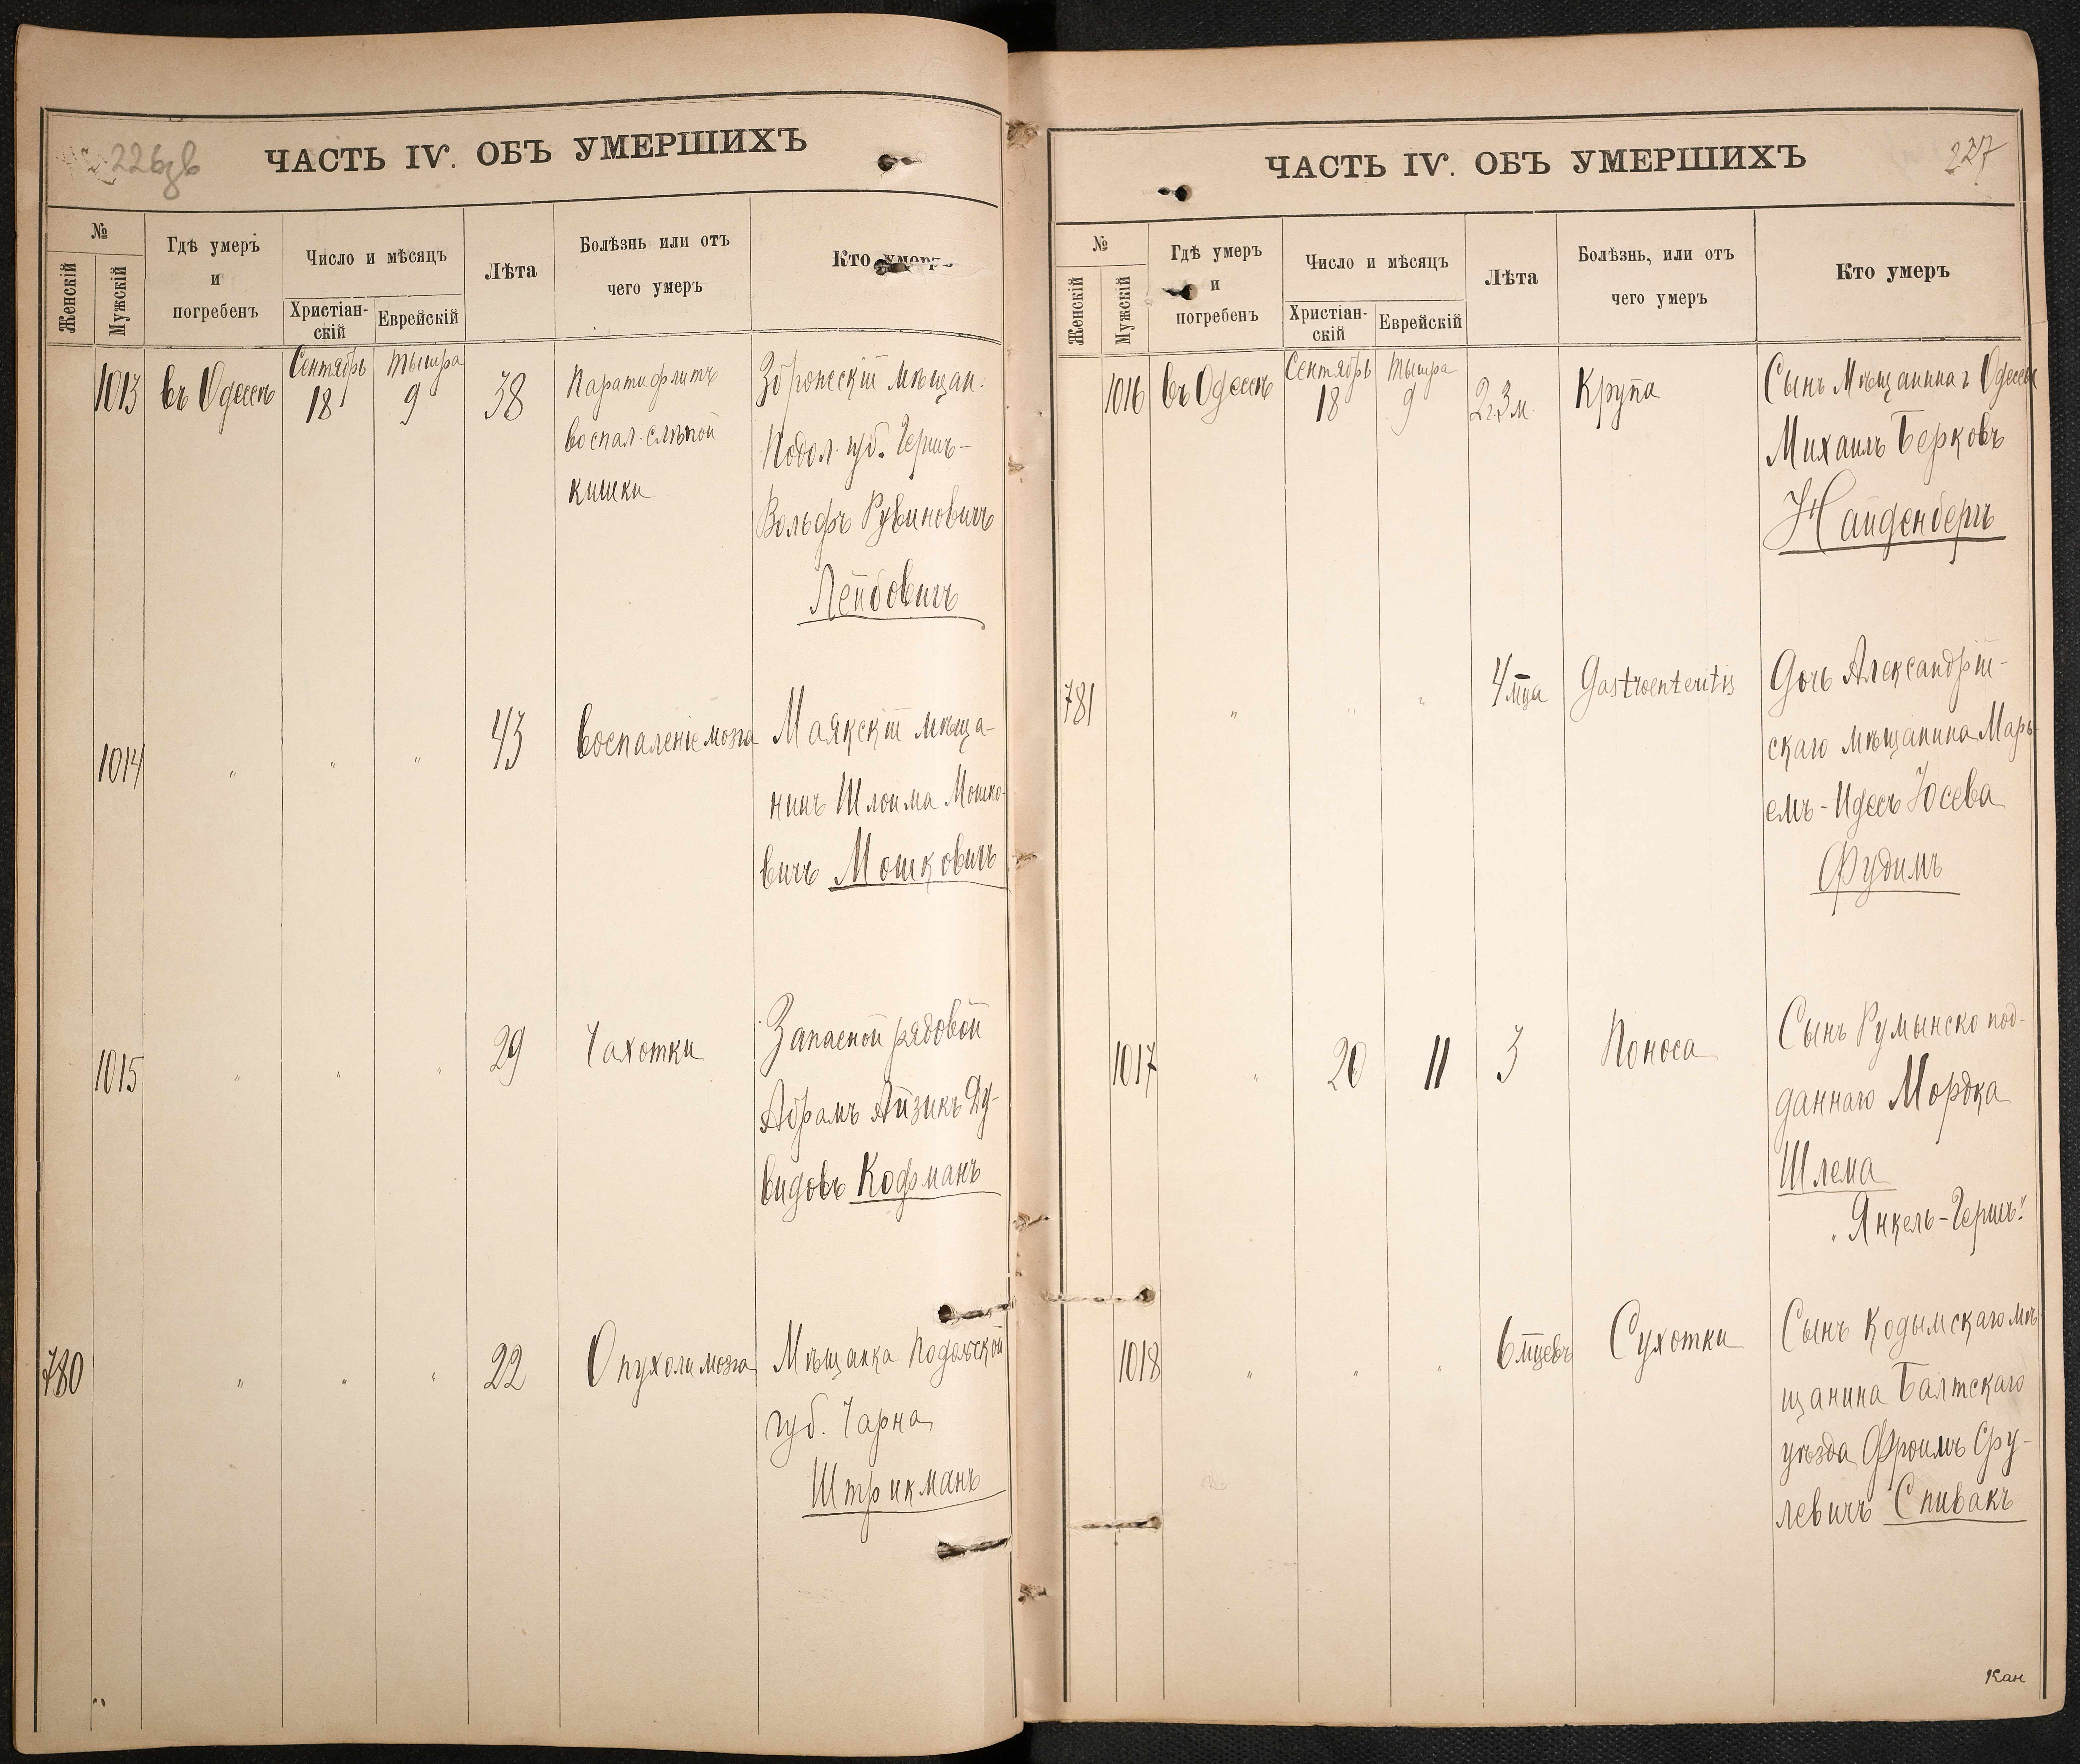 226зв
ЧАСТЬ IV. ОБЪ УМЕРШИХЪ
№
Женскій
Мужскій
Гдѣ умеръ
и
погребенъ
Число и мѣсяцъ
Христіан-
скій
Еврейскій
Лѣта
Болѣзнь или отъ
чего умеръ
Кто умеръ
1013
въ Одессѣ
Сентябрь
18
Тышра
9
38
Паратифлитъ
воспал. слѣпой
кишки
мѣщан.
Подол. губ. Гершъ-
Вольфъ Рувиновичъ
Лейбовичъ
1014
"
"
"
43
Воспаленіе мозга
Маякскій мѣща-
нинъ Шлойма Мошко-
вичъ Мошковичъ
1015
"
"
"
29
Чахотки
Запасной рядовой
Абрамъ Айзикъ Ду-
видовъ Кофманъ
780
"
"
"
22
Опухоли мозга
Мѣщанка Подольской
губ. Чарна
Штрикманъ
227
ЧАСТЬ IV. ОБЪ УМЕРШИХЪ
№
Женскій
Мужскій
Гдѣ умеръ
и
погребенъ
Число и мѣсяцъ
Христіан-
скій
Еврейскій
Лѣта
Болѣзнь, или отъ
чего умеръ
Кто умеръ
1016
въ Одессѣ
Сентябрь
18
Тышра
9
2г.3м.
Крупа
Сынъ Мѣщанина г Одессы
Михаилъ Берковъ
Найденбергъ
781
"
"
"
4 мца
Gastroenteritis
Дочь Александрій-
скаго мѣщанина Марь-
емъ-Идесъ Юсева
Фудимъ
1017
"
20
11
3
Поноса
Сынъ Румынско под-
даннаго Мордка
Шлема
"Янкель-Гершъ"
1018
"
"
"
6 мцевъ
Сухотки
Сынъ Кодымскаго мѣ-
щанина Балтскаго
уѣзда Фроимъ Сру-
левичъ Спивакъ
Кан